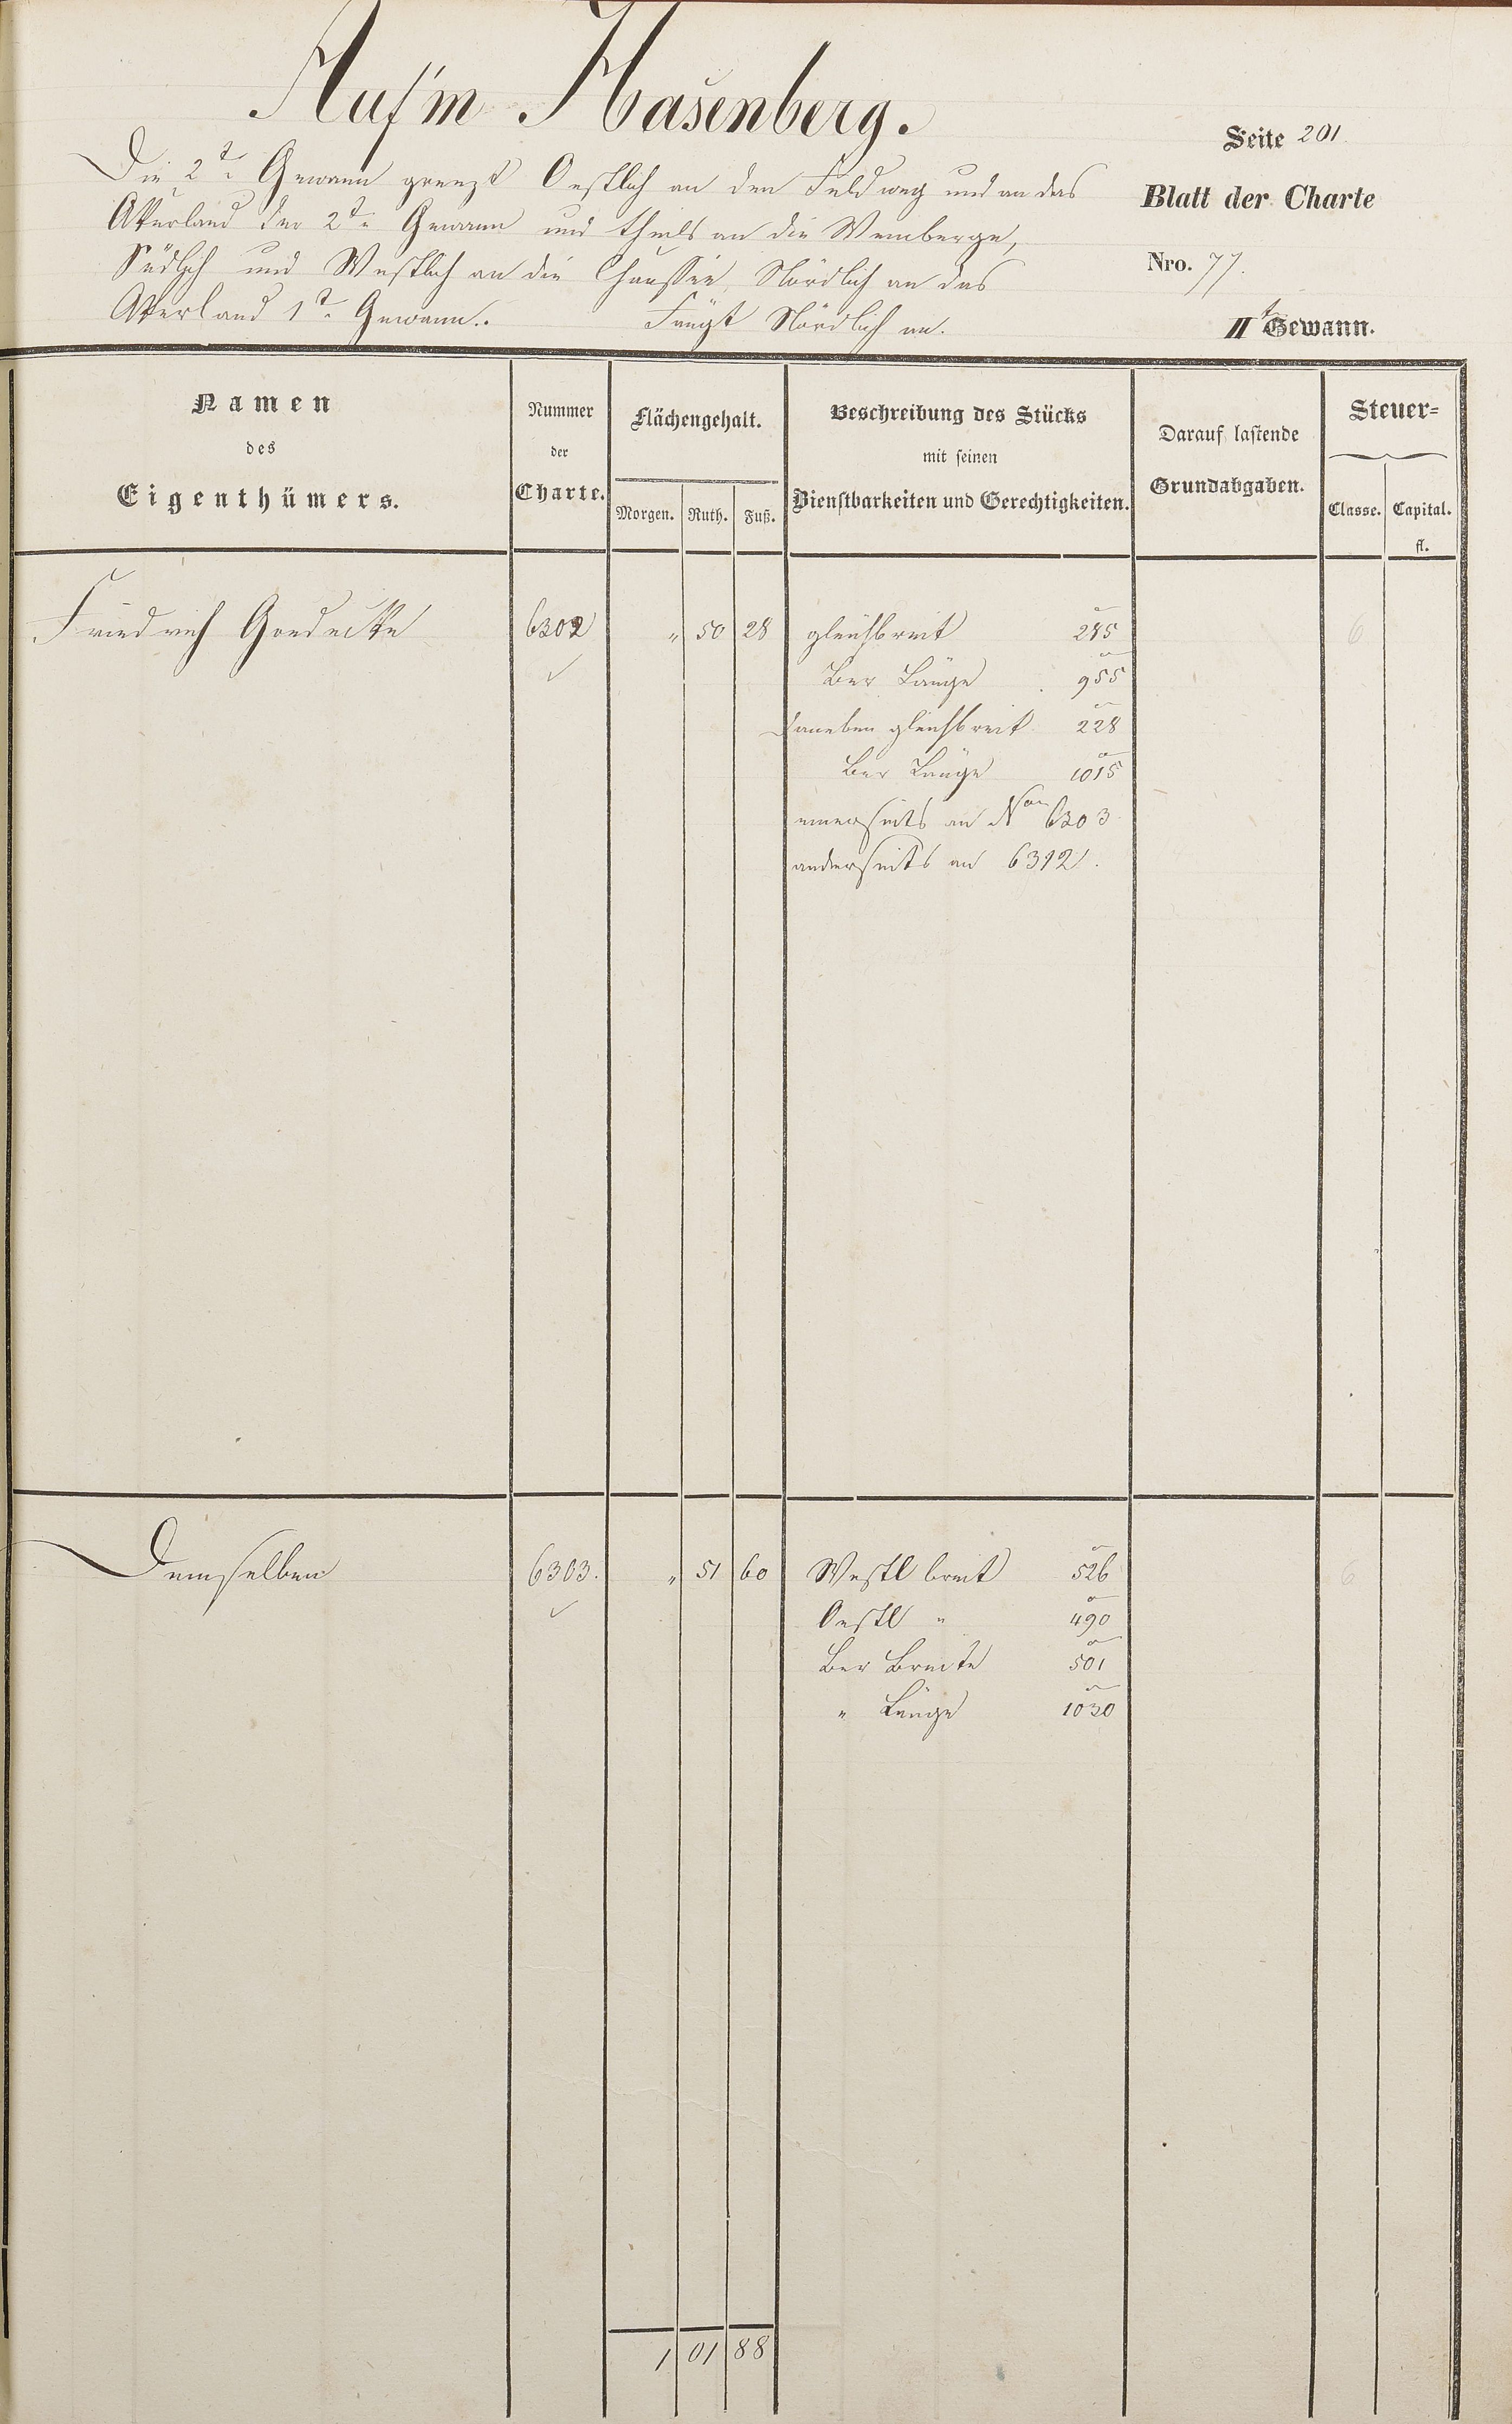 Auf'm Hasenberg.
Seite 201.
Die 2te Gewann grenzt Oestlich an den Feldweg und an das
Blatt der Charte
Akerland der 2te Gewann und theils an die Weinberge,
Südlich und Westlich an die Chaussée, Nördlich an das
Nro. 77.
Akerland 1te Gewann.. Fängt Nördlich an.
IIte Gewann.
Namen
des
Eigenthümers.
Nummer
der
Charte.
Flächengehalt.
Morgen. Ruth. Fuß.
Beschreibung des Stücks
mit seinen
Dienstbarkeiten und Gerechtigkeiten.
Darauf lastende
Grundabgaben.
Steuer=
Classe. Capital.
fl.
Friedrich Goedecke 6302 " 50 28 gleichbreit 285 6
Ber Länge 955
daneben gleichbreit 228
Ber Länge 1015
einerseits an No 6303
anderseits an 6312.
Demselben 6303. " 51 60 Westl breit 526 6
Oestl " 490
Ber Breite 501
" Länge 1030
1 01 88